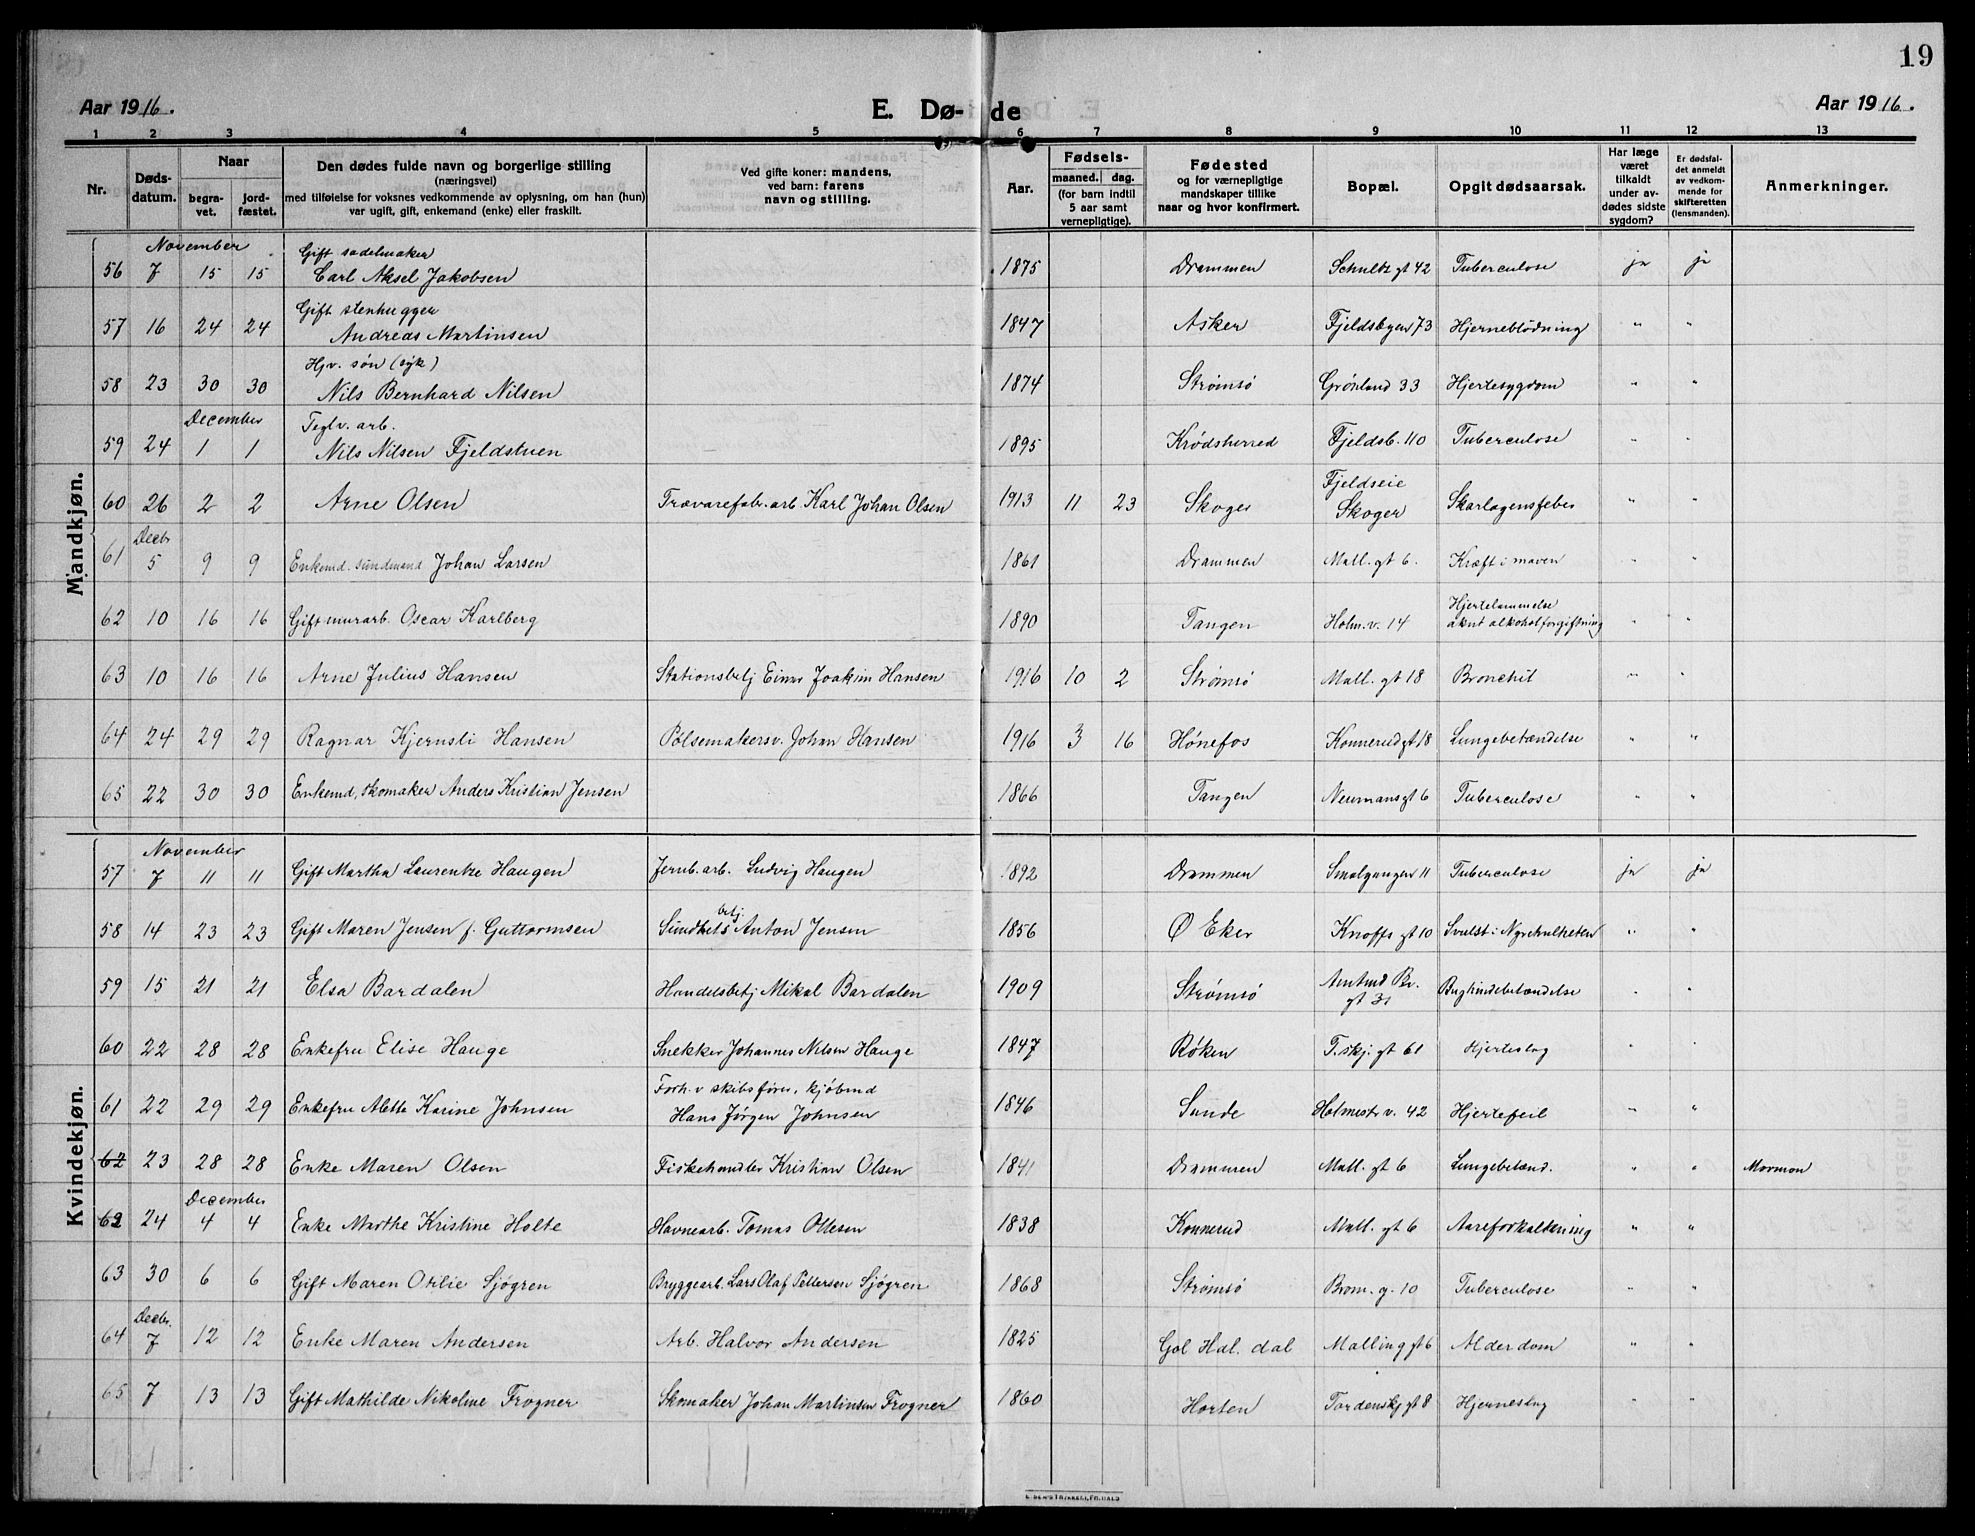 19
Aar 1916. E. Dø- de Aar 1916.
1 2 3 4 5 6 7 8 9 10 11 12 13
Nr. Døds-datum. Naar begra-vet. jord-fæstet. Den dødes fulde navn og borgerlige stilling (næringsvei) med tilføielse for voksnes vedkommende av oplysning, om han (hun) var ugift, gift, enkemand (enke) eller fraskilt. Ved gifte koner: mandens, ved barn: farens navn og stilling. Aar. Fødsels- maaned. dag. (for barn indtil 5 aar samt vernepligtige). Fødested og for værnepligtige mandskaper tillike naar og hvor konfirmert. Bopæl. Opgit dødsaarsak. Har læge været tilkaldt under av-dødes sidste sygdom? Er dødsfal-det anmeldt av vedkom-mende for skifteretten (lensmanden). Anmerkninger.
Mandkjøn.
November Gift sadelmaker
56 7 15 15 Carl Aksel Jakobsen 1875 Drammen Schultz gt 42 Tuberculose ja ja
Gift stenhugger
57 16 24 24 Andreas Martinsen 1847 Asker Fjeldsbyen 73 Hjerneblödning " "
Hjv. søn (syk)
58 23 30 30 Nils Bernhard Nilsen 1874 Strømsø Grønland 33 Hjertesygdom " "
December Teglv. arb.
59 24 1 1 Nils Nilsen Fjeldstuen 1895 Krødsherred Fjeldsb. 110 Tuberculose " "
60 26 2 2 Arne Olsen Trævarefabr. arb. Karl Johan Olsen 1913 11 23 Skoger Fjeldseie Skoger Skarlagensfeber " "
Decbr
61 5 9 9 Enkemd. sundmand Johan Larsen 1861 Drammen Mall. gt 6. Kræft i maven " "
62 10 16 16 Gift murarb. Oscar Karlberg 1890 Tangen Holm. v. 14 Hjertelammelse akut alkoholforgiftning " "
63 10 16 16 Arne Julius Hansen Stationsbetj Einar Joakim Hansen 1916 10 2 Strømsø Mall. gt 18 Bronchit " "
64 24 29 29 Ragnar Kjernsli Hansen Pølsemakersv. Johan Hansen 1916 3 16 Hønefos Konnerud gt 18 Lungebetændelse " "
65 22 30 30 Enkemd, skomaker Anders Kristian Jensen 1866 Tangen Neumans gt 6 Tuberculose " "
Kvindekjøn.
November
57 7 11 11 Gift Martha Laurentze Haugen Jernb. arb. Ludvig Haugen 1892 Drammen Smalgangen 11 Tuberculose ja ja
58 14 23 23 Gift Maren Jensen f. Guttormsen Sundhetsbetj Anton Jensen 1856 Ø Eker Knoffs gt 10 Svulst i " "
59 15 21 21 Elsa Bardalen Handelsbetj Mikal Bardalen 1909 Strømsø Amtmd Bl. gt 31 Bughindebetændelse " "
60 22 28 28 Enkefru Elise Hauge Snekker Johannes Nilsen Hauge 1847 Røken T.skj. gt 61 Hjerteslag " "
Forh.v skibsfører, kjøbmd
61 22 29 29 Enkefru Aletta Karine Johnsen Hans Jørgen Johnsen 1846 Sande Holmestr v. 42 Hjertefeil " "
62 23 28 28 Enke Maren Olsen Fiskehandler Kristian Olsen 1841 Drammen Mall. gt 6 Lungebetænd. " " Mormon
December
62 24 4 4 Enke Marthe Kristine Holte Havnearb. Tomas Ottesen 1838 Konnerud Mall. gt 6 Aareforkalkning " "
63 30 6 6 Gift Maren Otilie Sjøgren Bryggearb. Lars Olaf Pettersen Sjøgren 1868 Strømsø Brom. g. 10 Tuberculose " "
Decbr.
64 7 12 12 Enke Maren Andersen Arb. Halvor Andersen 1825 Gol Hal. dal Malling gt 6 Alderdom " "
65 7 13 13 Gift Mathilde Nikoline Frogner Skomaker Johan Martinsen Frogner 1860 Horten Tordenskj gt 8 Hjerneslag " "